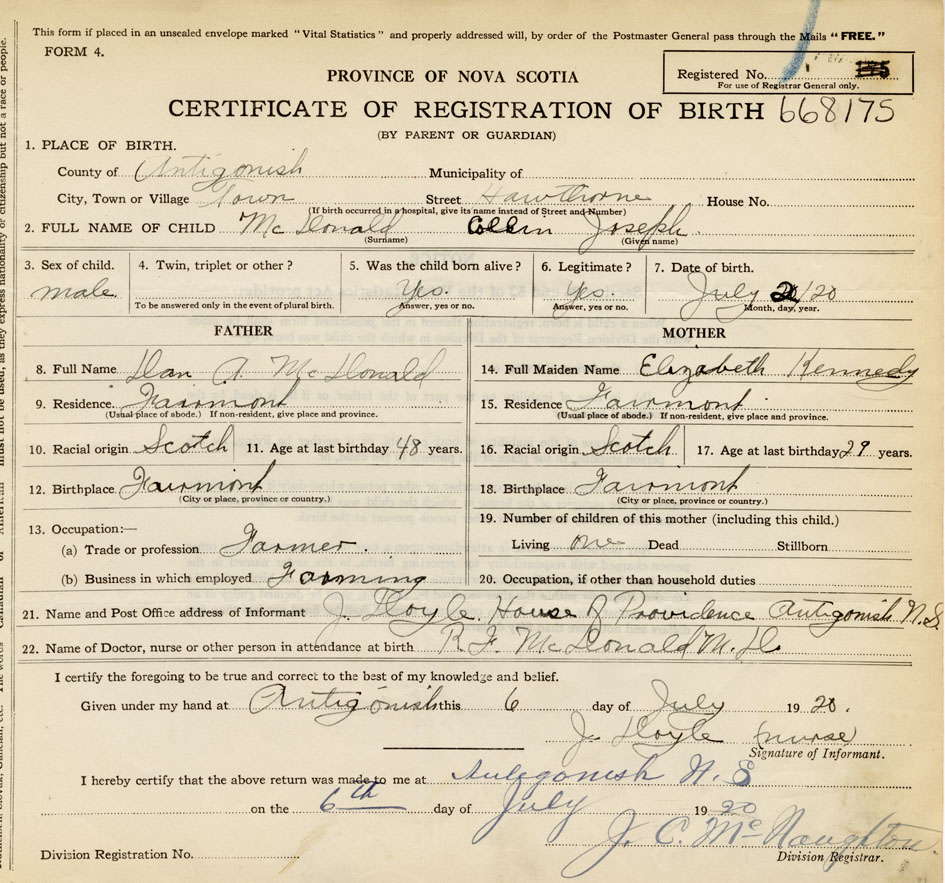 This form if placed in an unsealed envelope marked "Vital Statistics" and properly addressed will, by order of the Postmaster General pass through the Mails "FREE."
FORM 4.
Registered No.
For use of Registrar General only.
PROVINCE OF NOVA SCOTIA
CERTIFICATE OF REGISTRATION OF BIRTH 668175
(BY PARENT OR GUARDIAN)
1. PLACE OF BIRTH.
County of Antigonish Municipality of
City, Town or Village Town Street Hawthorne House No.
(If birth occurred in a hospital, give its name instead of Street and Number)
2. FULL NAME OF CHILD McDonald Joseph
(Surname) (Given name)
3. Sex of child. 4. Twin, triplet or other? 5. Was the child born alive? 6. Legitimate? 7. Date of birth.
male. Yes. Yes July /20
To be answered only in the event of plural birth. Answer, yes or no. Answer, yes or no. Month, day, year.
FATHER MOTHER
8. Full Name Dan A. McDonald 14. Full Maiden Name Elizabeth Kennedy
9. Residence. Fairmont 15. Residence Fairmont
(Usual place of abode.) If non-resident, give place and province. (Usual place of abode.) If non-resident, give place and province.
10. Racial origin Scotch 11. Age at last birthday 48 years. 16. Racial origin Scotch 17. Age at last birthday 29 years.
12. Birthplace Fairmont 18. Birthplace Fairmont
(City or place, province or country.) (City or place, province or country.)
13. Occupation:— 19. Number of children of this mother (including this child.)
(a) Trade or profession Farmer. Living one Dead Stillborn
(b) Business in which employed Farming 20. Occupation, if other than household duties
21. Name and Post Office address of Informant J. Doyle. House of Providence Antigonish N.S.
22. Name of Doctor, nurse or other person in attendance at birth R. F. McDonald M.D.
I certify the foregoing to be true and correct to the best of my knowledge and belief.
Given under my hand at Antigonish this 6 day of July 19 20.
J. Doyle (nurse)
Signature of Informant.
I hereby certify that the above return was made to me at Antigonish N. S
on the 6th day of July 19 20
J. C. McNaughton
Division Registration No. Division Registrar.